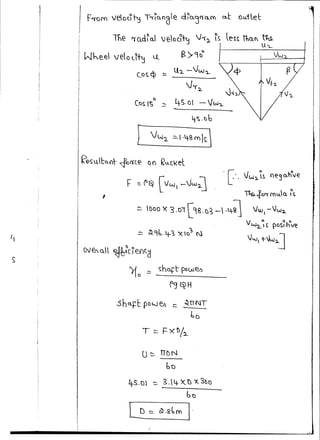 From velocity Triangle diagram at outlet
The radial velocity Vr₂ is less than the
wheel velocity u    β > 90°
u₂
Vw₂
cos ϕ = (u₂ - Vw₂) / Vr₂
ϕ
β
Vf₂
Vr₂
V₂
cos 15° = (45.01 - Vw₂) / 45.06
Vw₂ = 1.48 m/s
Resultant force on Bucket
F = ρQ [Vw₁ - Vw₂]
= 1000 × 3.01 [98.03 - 1.48]
= 296.43 × 10³ N
[∵ Vw₂ is negative
The formula is
Vw₁ - Vw₂
Vw₂ is positive
Vw₁ + Vw₂]
Overall efficiency
η₀ = shaft power / ρgQH
Shaft power = 2πNT / 60
T = F × D/2
U = πDN / 60
45.01 = 3.14 × D × 300 / 60
D = 2.86m